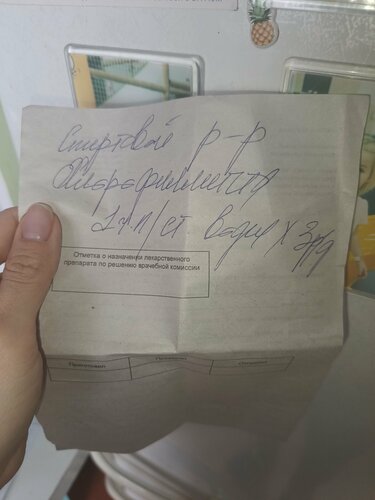 Спиртовой р-р
Хлорофиллипта
1 ч.л/ст воды х 3 р/д
Отметка о назначении лекарственного
препарата по решению врачебной комиссии
Приготовил Проверил Отпустил